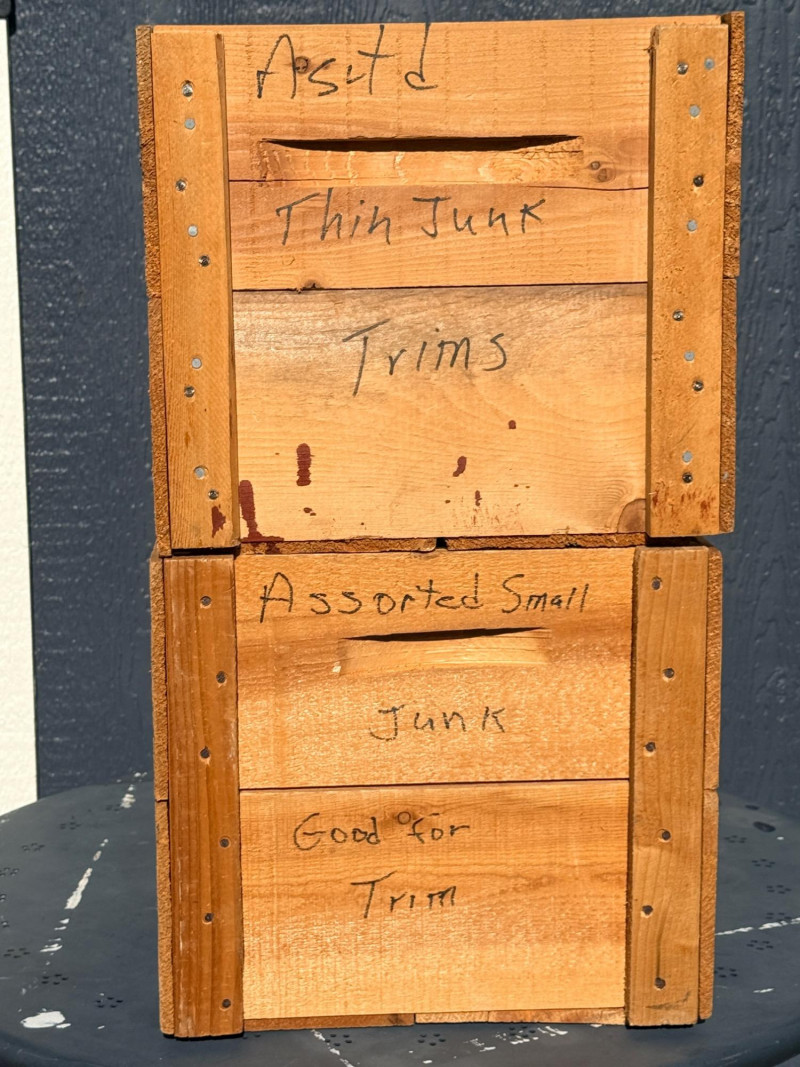 Ast'd
Thin Junk
Trims
Assorted Small
Junk
Good for
Trim